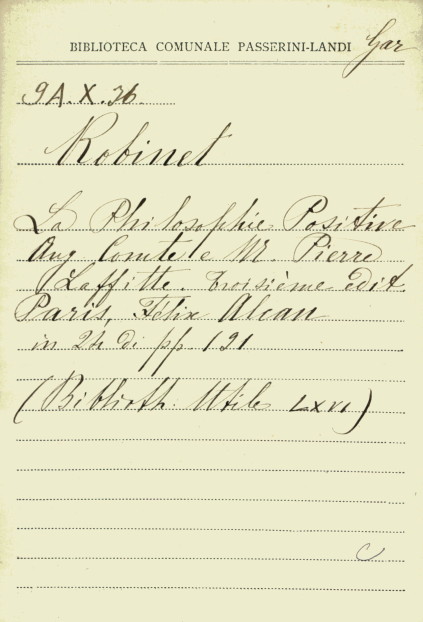 BIBLIOTECA COMUNALE PASSERINI-LANDI Gar
9A.X.36.
Robinet
La Philosophie Positive
Aug Comte e M. Pierre
Laffitte. Troisième édit.
Paris, Félix Alcan
in 24 di pp. 191
(Biblioth. Utile LXVI)
C